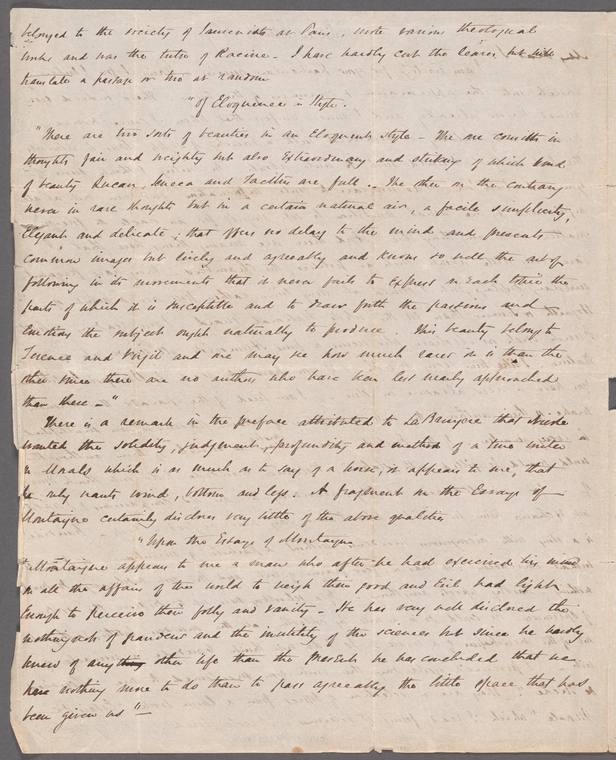 belonged to the society of Jansenists at Paris, wrote various theological
works and was the tutor of Racine - I have hardly cut the leaves but will
translate a passage or two at random
"Of Eloquence & Style.
"There are two sorts of beauties in an Eloquent style - The one consists in
thoughts fair and weighty but also Extraordinary and striking of which kind
of beauty Lucan, Seneca and Tacitus are full - The other on the contrary
never in rare thoughts but in a certain natural air, a facile simplicity,
Elegant and delicate; that offers no delay to the mind and presents
common images but lively and agreeably and knows so well the art of
following in its movements that it never fails to Express on Each topic the
parts of which it is susceptible and to draw forth the passions and
Emotions the subject ought naturally to produce. This beauty belongs to
Terence and Virgil and we may see how much rarer it is than the
other since there are no authors who have been less nearly approached
than these -"
There is a remark in the preface attributed to La Bruyere that
wanted the solidity, judgment, profundity and method of a true writer
on Morals which is as much as to say of a horse, it appears to me, that
he only wants wind, bottom and legs. A fragment on the Essays of
Montaigne certainly discloses very little of the above qualities
"Upon the Essays of Montaigne
"Montaigne appears to me a man who after he had exercised his mind
in all the affairs of this world to weigh their good and Evil had light
Enough to perceive their folly and vanity - He has very well disclosed the
nothingness of grandeur and the inutility of the sciences but since he hardly
knew of any thing other life than the present he has concluded that we
have nothing more to do than to pass agreeably the little space that has
been given us"-